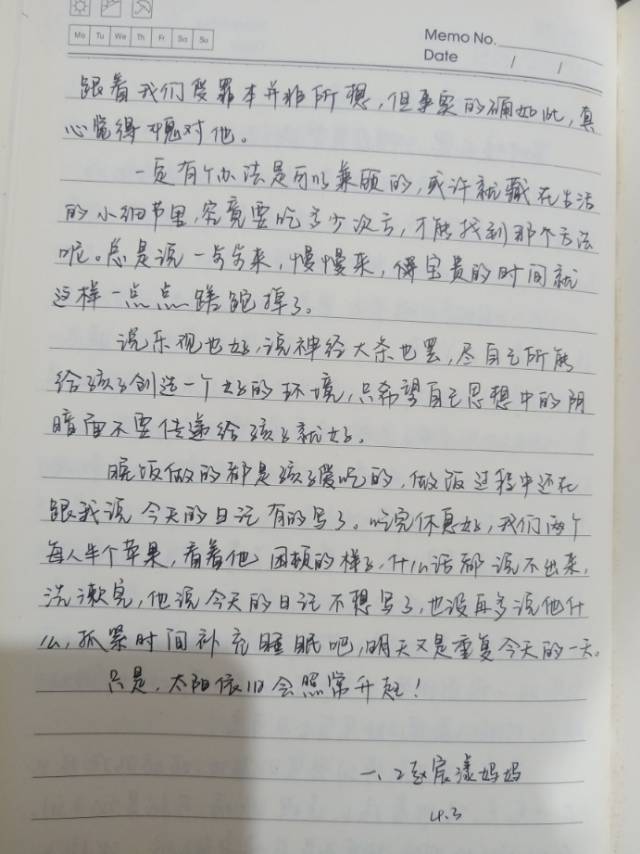 Mo Tu We Th Fr Sa Su
Memo No.
Date / /
跟着我们受罪本并非所想，但事实的确如此，真
心觉得愧对他。
一定有个办法是可以兼顾的，或许就藏在生活
的小细节里，究竟要吃多少次亏，才能找到那个方法
呢。总是说一步步来，慢慢来，但宝贵的时间就
这样一点点蹉跎掉了。
说乐观也好，说神经大条也罢，尽自己所能
给孩子创造一个好的环境，只希望自己思想中的阴
暗面不要传递给孩子就好。
晚饭做的都是孩子爱吃的，做饭过程中还在
跟我说今天的日记有的写了。吃完休息好，我们两个
每人半个苹果，看着他困顿的样子，什么话都说不出来，
洗漱完，他说今天的日记不想写了，也没再多说他什
么，抓紧时间补充睡眠吧，明天又是重复今天的一天。
只是，太阳依旧会照常升起！
一、2 赵宸漾妈妈
4.3